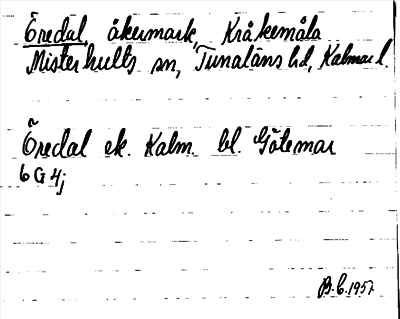 Öredal, åkermark, Kråkemåla
Misterhults sn, Tunaläns hd, Kalmar l.
Öredal ek. Kalm. bl. Götemar
6 G 4j
B.C. 1957